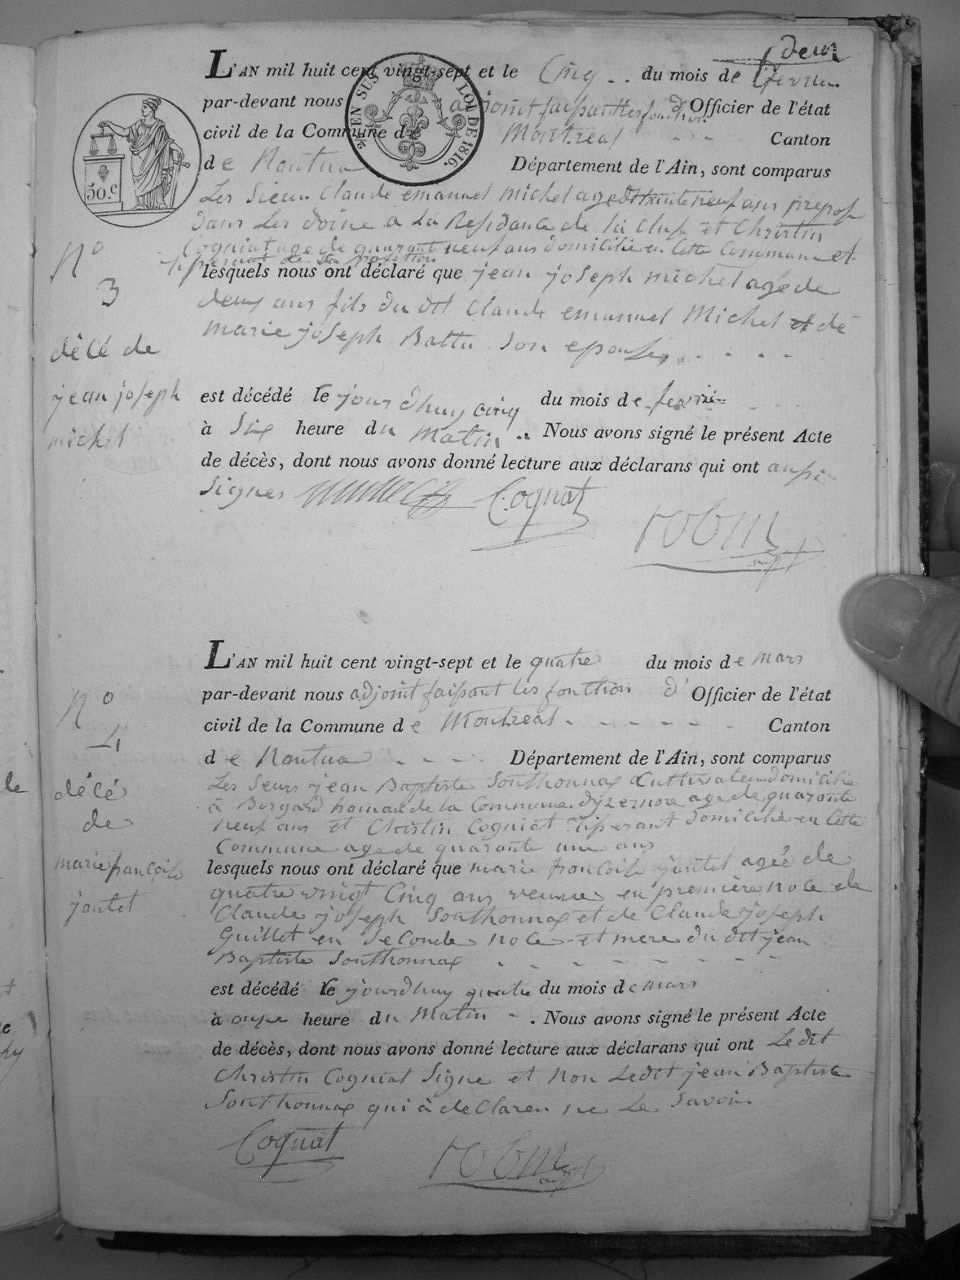 deux
L'AN mil huit cent vingt-sept et le Cinq .. du mois de fevrier
par-devant nous adjoint faisant les fonction d'Officier de l'état
civil de la Commune de Montreal - - Canton
de Nantua Département de l'Ain, sont comparus
Les Sieur Claude emanuel michel age de trente neuf ans prepose
dans Les doine a La Residance de la Cluse et Christin
Cogniat age de quarant neuf ans domicilié en Cette Commune et
de Son
lesquels nous ont déclaré que jean joseph michel age de
deux ans fils du dit Claude emanuel Michel et de
marie joseph Battu Son epouse
est décédé le jourdhuy cinq du mois de fevrier
à Six heure du Matin .. Nous avons signé le présent Acte
de décès, dont nous avons donné lecture aux déclarans qui ont aussi
Signes Cognat
EN SUS LOI DE 1816.
50.c
No
3
décé de
jean joseph
michel
L'AN mil huit cent vingt-sept et le quatre du mois de mars
par-devant nous adjoint faisant les fonction d'Officier de l'état
civil de la Commune de Montreal - - - - - Canton
de Nantua - - - Département de l'Ain, sont comparus
Les Seurs jean Baptiste Sonthonnax Cultivateur domicilié
à hamax de la Commune dyzernore age de quarante
neuf ans et Christin Cogniat domicilié en Cette
Commune age de quarante une ans
lesquels nous ont déclaré que marie françoise jantet agée de
quatre vingt Cinq ans veuve en première noce de
Claude joseph Sonthonnax et de Claude joseph
Guillot en Seconde noce et mere du dit jean
Baptiste Sonthonnax - - - - - - - -
est décédé le jourdhuy quatre du mois de mars
à onze heure du Matin - . Nous avons signé le présent Acte
de décès, dont nous avons donné lecture aux déclarans qui ont Ledit
Christin Cogniat Signe et non Ledit jean Baptiste
Sonthonnax qui à declaren ne Le Savoir
Cognat
No
4
décé
de
marie françoise
jantet